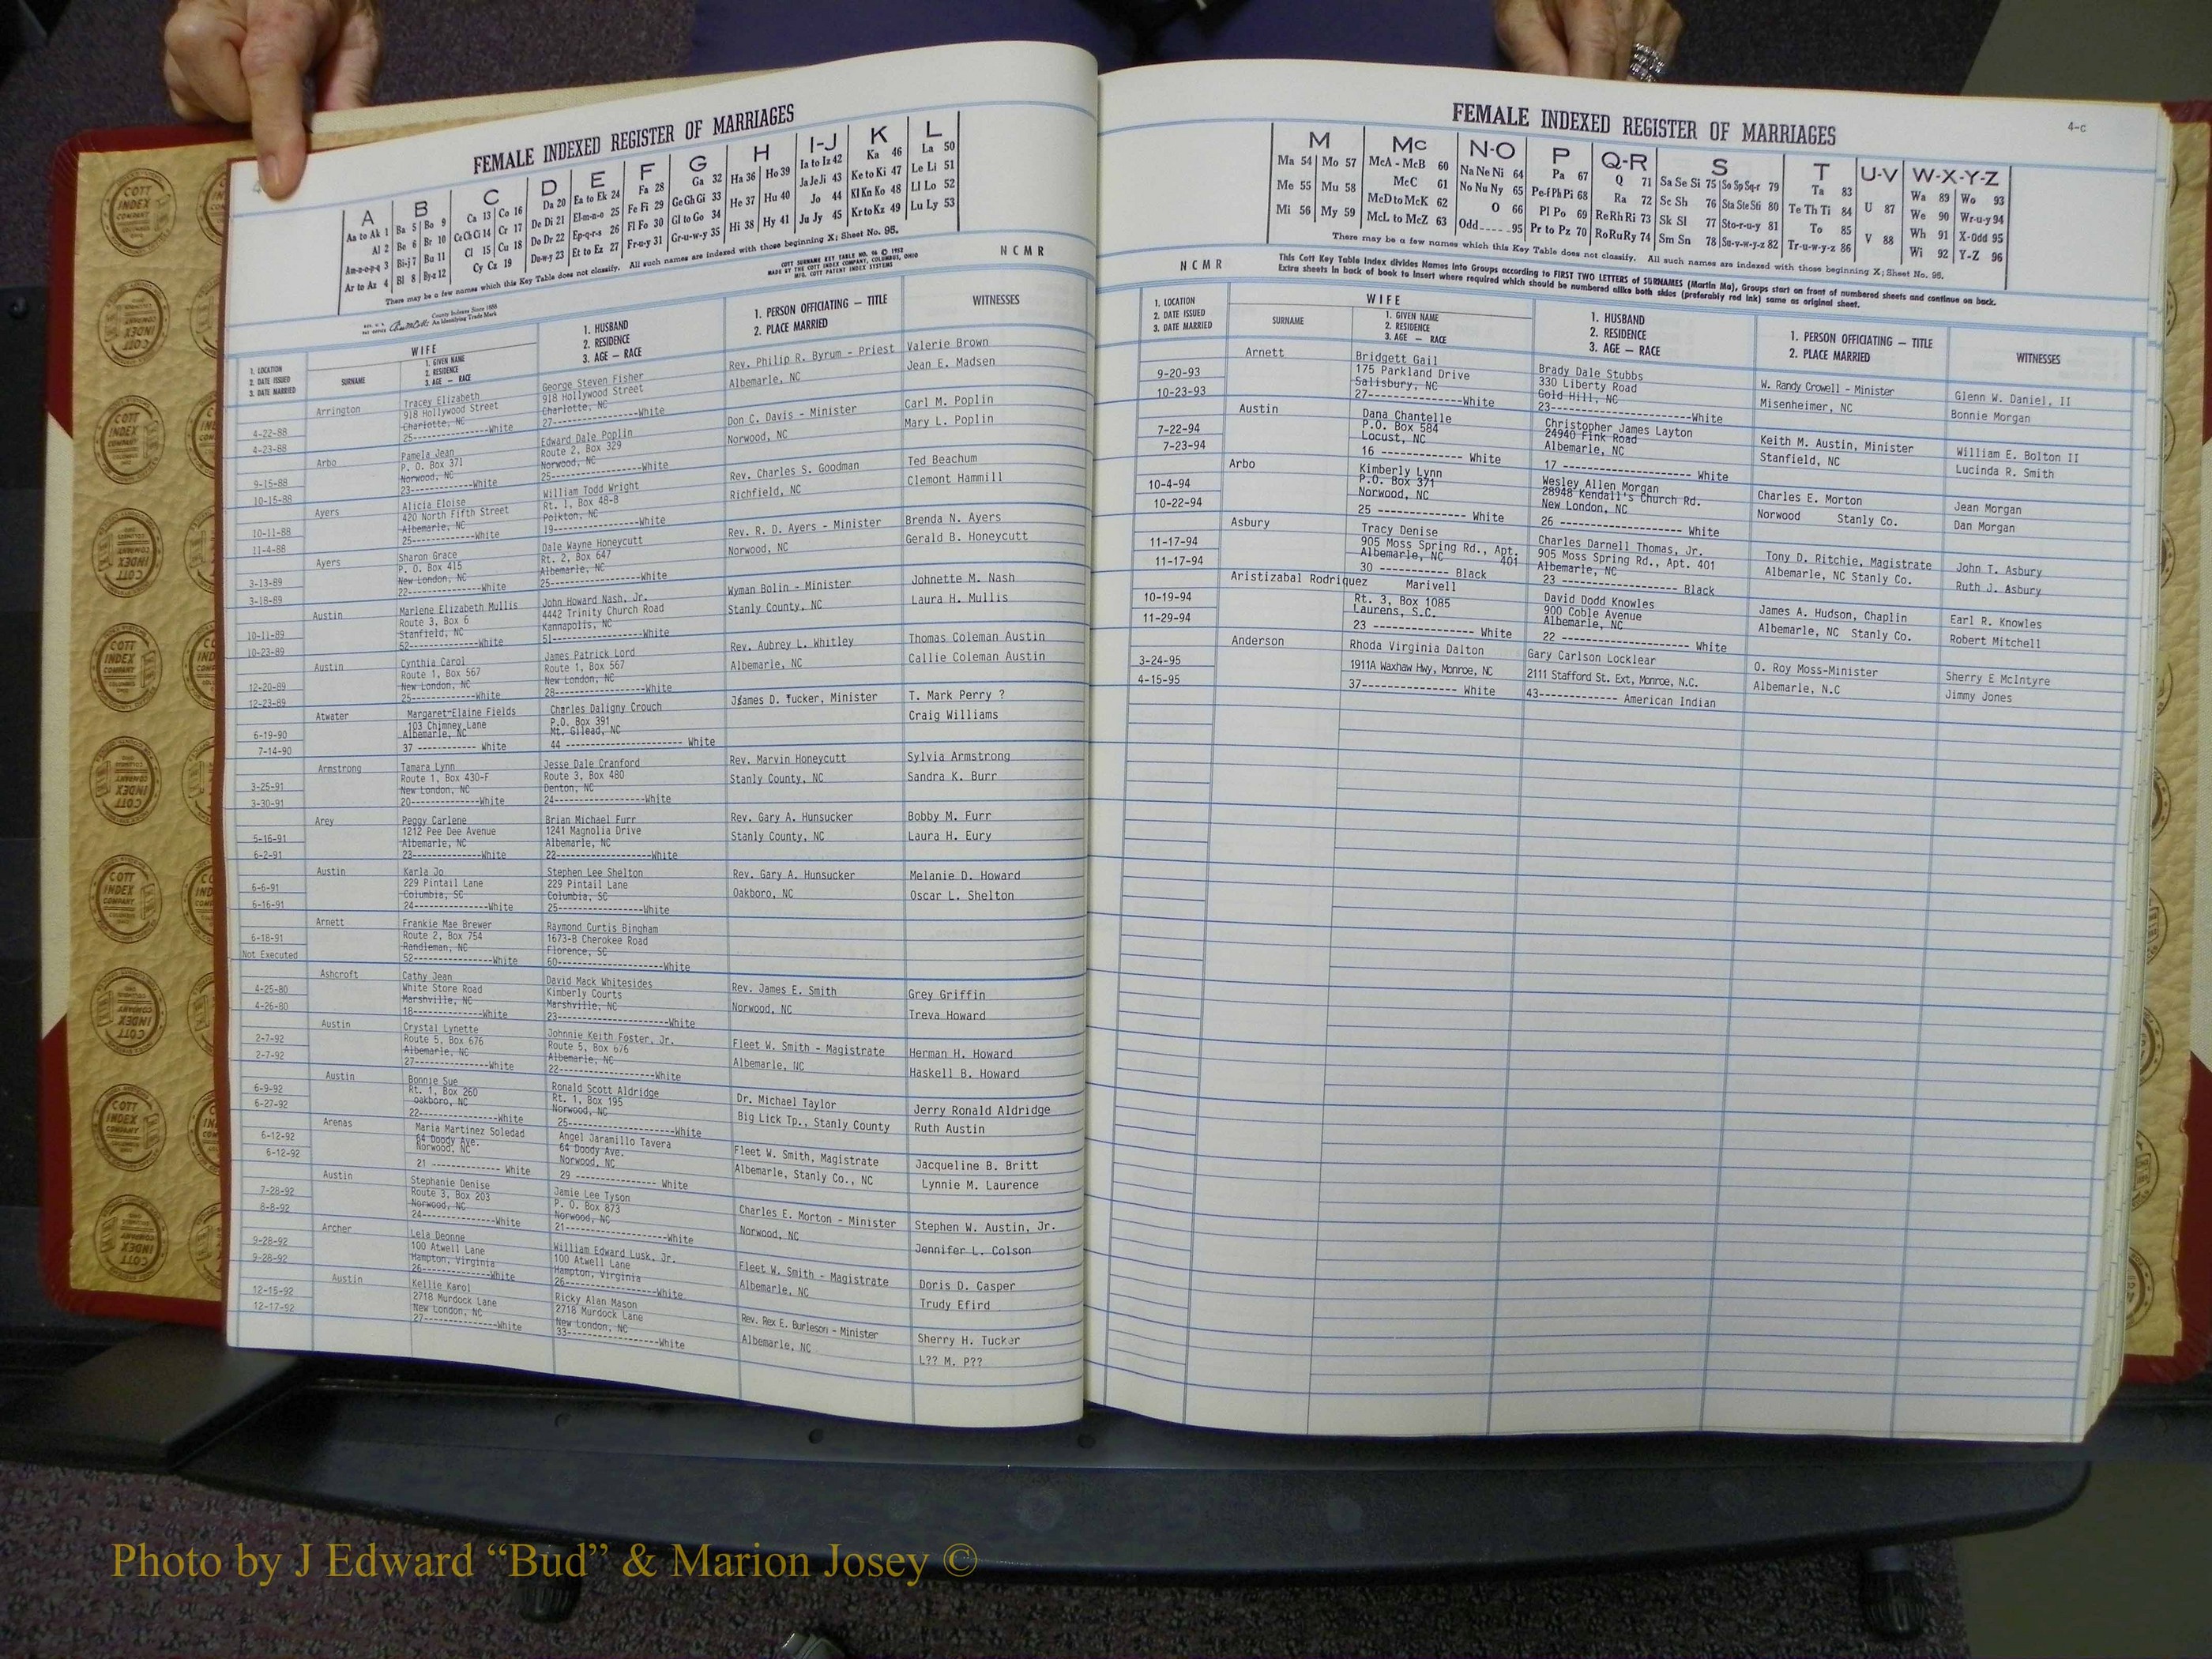 FEMALE INDEXED REGISTER OF MARRIAGES
A B C D E F G H I-J K L
Aa to Ak 1 Ba 5 Bo 9 Ca 13 Co 16 Da 20 Ea to Ek 24 Fa 28 Ga 32 Ha 36 Ho 39 Ia to Iz 42 Ka 46 La 50
Al 2 Be 6 Br 10 Ce Ch Ci 14 Cr 17 De Di 21 El-m-n-o 25 Fe Fi 29 Ge Gh Gi 33 He 37 Hu 40 Ja Je Ji 43 Ke to Ki 47 Le Li 51
Am-n-o-p-q 3 Bi-j 7 Bu 11 Cl 15 Cu 18 Do Dr 22 Ep-q-r-s 26 Fl Fo 30 Gl to Go 34 Hi 38 Hy 41 Jo 44 Kl Kn Ko 48 Ll Lo 52
Ar to Az 4 Bl 8 By-z 12 Cy Cz 19 Du-w-y 23 Et to Ez 27 Fr-u-y 31 Gr-u-w-y 35 Ju Jy 45 Kr to Kz 49 Lu Ly 53
There may be a few names which this Key Table does not classify. All such names are indexed with those beginning X; Sheet No. 95.
COTT SURNAME KEY TABLE NO. 96 © 1952
MADE BY THE COTT INDEX COMPANY, COLUMBUS, OHIO
MFG. COTT PATENT INDEX SYSTEMS
N C M R
County Indexes Since 1888
An Identifying Trade Mark
1. LOCATION
2. DATE ISSUED
3. DATE MARRIED
WIFE
SURNAME
1. GIVEN NAME
2. RESIDENCE
3. AGE — RACE
1. HUSBAND
2. RESIDENCE
3. AGE — RACE
1. PERSON OFFICIATING — TITLE
2. PLACE MARRIED
WITNESSES
Arrington Tracey Elizabeth George Steven Fisher Rev. Philip R. Byrum - Priest Valerie Brown
918 Hollywood Street 918 Hollywood Street Albemarle, NC Jean E. Madsen
4-22-88 Charlotte, NC Charlotte, NC
4-23-88 25---------------White 27---------------White
Arbo Pamela Jean Edward Dale Poplin Don C. Davis - Minister Carl M. Poplin
P. O. Box 371 Route 2, Box 329 Norwood, NC Mary L. Poplin
9-15-88 Norwood, NC Norwood, NC
10-15-88 23---------------White 25---------------White
Ayers Alicia Eloise William Todd Wright Rev. Charles S. Goodman Ted Beachum
420 North Fifth Street Rt. 1, Box 48-B Richfield, NC Clemont Hammill
10-11-88 Albemarle, NC Polkton, NC
11-4-88 25---------------White 19---------------White
Ayers Sharon Grace Dale Wayne Honeycutt Rev. R. D. Ayers - Minister Brenda N. Ayers
P. O. Box 415 Rt. 2, Box 647 Norwood, NC Gerald B. Honeycutt
3-13-89 New London, NC Albemarle, NC
3-18-89 22---------------White 25---------------White
Austin Marlene Elizabeth Mullis John Howard Nash, Jr. Wyman Bolin - Minister Johnette M. Nash
Route 3, Box 6 4442 Trinity Church Road Stanly County, NC Laura H. Mullis
10-11-89 Stanfield, NC Kannapolis, NC
10-23-89 52---------------White 51---------------White
Austin Cynthia Carol James Patrick Lord Rev. Aubrey L. Whitley Thomas Coleman Austin
Route 1, Box 567 Route 1, Box 567 Albemarle, NC Callie Coleman Austin
12-20-89 New London, NC New London, NC
12-23-89 25---------------White 28---------------White
Atwater Margaret Elaine Fields Charles Daligny Crouch James D. Tucker, Minister T. Mark Perry ?
103 Chimney Lane P.O. Box 391 Craig Williams
6-19-90 Albemarle, NC Mt. Gilead, NC
7-14-90 37 ------------ White 44 --------------------- White
Armstrong Tamara Lynn Jesse Dale Cranford Rev. Marvin Honeycutt Sylvia Armstrong
Route 1, Box 430-F Route 3, Box 480 Stanly County, NC Sandra K. Burr
3-25-91 New London, NC Denton, NC
3-30-91 20---------------White 24---------------White
Arey Peggy Carlene Brian Michael Furr Rev. Gary A. Hunsucker Bobby M. Furr
1212 Pee Dee Avenue 1241 Magnolia Drive Stanly County, NC Laura H. Eury
5-16-91 Albemarle, NC Albemarle, NC
6-2-91 23---------------White 22---------------White
Austin Karla Jo Stephen Lee Shelton Rev. Gary A. Hunsucker Melanie D. Howard
6-6-91 229 Pintail Lane 229 Pintail Lane Oakboro, NC Oscar L. Shelton
6-16-91 Columbia, SC Columbia, SC
24---------------White 25---------------White
Arnett Frankie Mae Brewer Raymond Curtis Bingham
6-18-91 Route 2, Box 754 1673-B Cherokee Road
Not Executed Randleman, NC Florence, SC
52---------------White 60---------------White
Ashcroft Cathy Jean David Mack Whitesides Rev. James E. Smith Grey Griffin
4-25-80 White Store Road Kimberly Courts Norwood, NC Treva Howard
4-26-80 Marshville, NC Marshville, NC
18---------------White 23---------------White
Austin Crystal Lynette Johnnie Keith Foster, Jr. Fleet W. Smith - Magistrate Herman H. Howard
2-7-92 Route 5, Box 676 Route 5, Box 676 Albemarle, NC Haskell B. Howard
2-7-92 Albemarle, NC Albemarle, NC
27---------------White 22---------------White
Austin Bonnie Sue Ronald Scott Aldridge Dr. Michael Taylor Jerry Ronald Aldridge
6-9-92 Rt. 1, Box 260 Rt. 1, Box 195 Big Lick Tp., Stanly County Ruth Austin
6-27-92 oakboro, NC Norwood, NC
22---------------White 25---------------White
Arenas Maria Martinez Soledad Angel Jaramillo Tavera Fleet W. Smith, Magistrate Jacqueline B. Britt
6-12-92 64 Doody Ave. 64 Doody Ave. Albemarle, Stanly Co., NC Lynnie M. Laurence
6-12-92 Norwood, NC Norwood, NC
21 -------------- White 29 -------------- White
Austin Stephanie Denise Jamie Lee Tyson Charles E. Morton - Minister Stephen W. Austin, Jr.
7-28-92 Route 3, Box 203 P. O. Box 873 Norwood, NC Jennifer L. Colson
8-8-92 Norwood, NC Norwood, NC
24---------------White 21---------------White
Archer Lela Deonne William Edward Lusk, Jr. Fleet W. Smith - Magistrate Doris D. Casper
9-28-92 100 Atwell Lane 100 Atwell Lane Albemarle, NC Trudy Efird
9-28-92 Hampton, Virginia Hampton, Virginia
26---------------White 26---------------White
Austin Kellie Karol Ricky Alan Mason Rev. Rex E. Burleson - Minister Sherry H. Tucker
12-15-92 2718 Murdock Lane 2718 Murdock Lane Albemarle, NC L?? M. P??
12-17-92 New London, NC New London, NC
27---------------White 33---------------White
FEMALE INDEXED REGISTER OF MARRIAGES
4-c
M Mc N-O P Q-R S T U-V W-X-Y-Z
Ma 54 Mo 57 McA - McB 60 Na Ne Ni 64 Pa 67 Q 71 Sa Se Si 75 So Sp Sq-r 79 Ta 83 U 87 Wa 89 Wo 93
Me 55 Mu 58 McC 61 No Nu Ny 65 Pe-f Ph Pi 68 Ra 72 Sc Sh 76 Sta Ste Sti 80 Te Th Ti 84 V 88 We 90 Wr-u-y 94
Mi 56 My 59 McD to McK 62 O 66 Pl Po 69 Re Rh Ri 73 Sk Sl 77 Sto-r-u-y 81 To 85 Wh 91 X-Odd 95
McL to McZ 63 Odd 95 Pr to Pz 70 Ro Ru Ry 74 Sm Sn 78 Su-v-w-y-z 82 Tr-u-w-y-z 86 Wi 92 Y-Z 96
There may be a few names which this Key Table does not classify. All such names are indexed with those beginning X; Sheet No. 95.
N C M R
This Cott Key Table Index divides Names into Groups according to FIRST TWO LETTERS of SURNAMES (Martin Ma), Groups start on front of numbered sheets and continue on back.
Extra sheets in back of book to insert where required which should be numbered alike both sides (preferably red ink) same as original sheet.
1. LOCATION
2. DATE ISSUED
3. DATE MARRIED
WIFE
SURNAME
1. GIVEN NAME
2. RESIDENCE
3. AGE — RACE
1. HUSBAND
2. RESIDENCE
3. AGE — RACE
1. PERSON OFFICIATING — TITLE
2. PLACE MARRIED
WITNESSES
Arnett Bridgett Gail Brady Dale Stubbs W. Randy Crowell - Minister Glenn W. Daniel, II
9-20-93 175 Parkland Drive 330 Liberty Road Misenheimer, NC Bonnie Morgan
10-23-93 Salisbury, NC Gold Hill, NC
27---------------White 23---------------White
Austin Dana Chantelle Christopher James Layton Keith M. Austin, Minister William E. Bolton II
7-22-94 P.O. Box 584 24940 Fink Road Stanfield, NC Lucinda R. Smith
7-23-94 Locust, NC Albemarle, NC
16 ------------ White 17 --------------------- White
Arbo Kimberly Lynn Wesley Allen Morgan Charles E. Morton Jean Morgan
10-4-94 P.O. Box 371 28948 Kendall's Church Rd. Norwood Stanly Co. Dan Morgan
10-22-94 Norwood, NC New London, NC
25 -------------- White 26 ------------------- White
Asbury Tracy Denise Charles Darnell Thomas, Jr. Tony D. Ritchie, Magistrate John T. Asbury
11-17-94 905 Moss Spring Rd., Apt. 401 905 Moss Spring Rd., Apt. 401 Albemarle, NC Stanly Co. Ruth J. Asbury
11-17-94 Albemarle, NC Albemarle, NC
30 ----------- Black 23 ------------------- Black
Aristizabal Rodriquez Marivell David Dodd Knowles James A. Hudson, Chaplin Earl R. Knowles
10-19-94 Rt. 3, Box 1085 900 Coble Avenue Albemarle, NC Stanly Co. Robert Mitchell
11-29-94 Laurens, S.C. Albemarle, NC
23 -------------- White 22 --------------------- White
Anderson Rhoda Virginia Dalton Gary Carlson Locklear O. Roy Moss-Minister Sherry E McIntyre
3-24-95 1911A Waxhaw Hwy, Monroe, NC 2111 Stafford St. Ext, Monroe, N.C. Albemarle, N.C Jimmy Jones
4-15-95 37--------------- White 43------------ American Indian
COTT INDEX COMPANY
Photo by J Edward “Bud” & Marion Josey ©